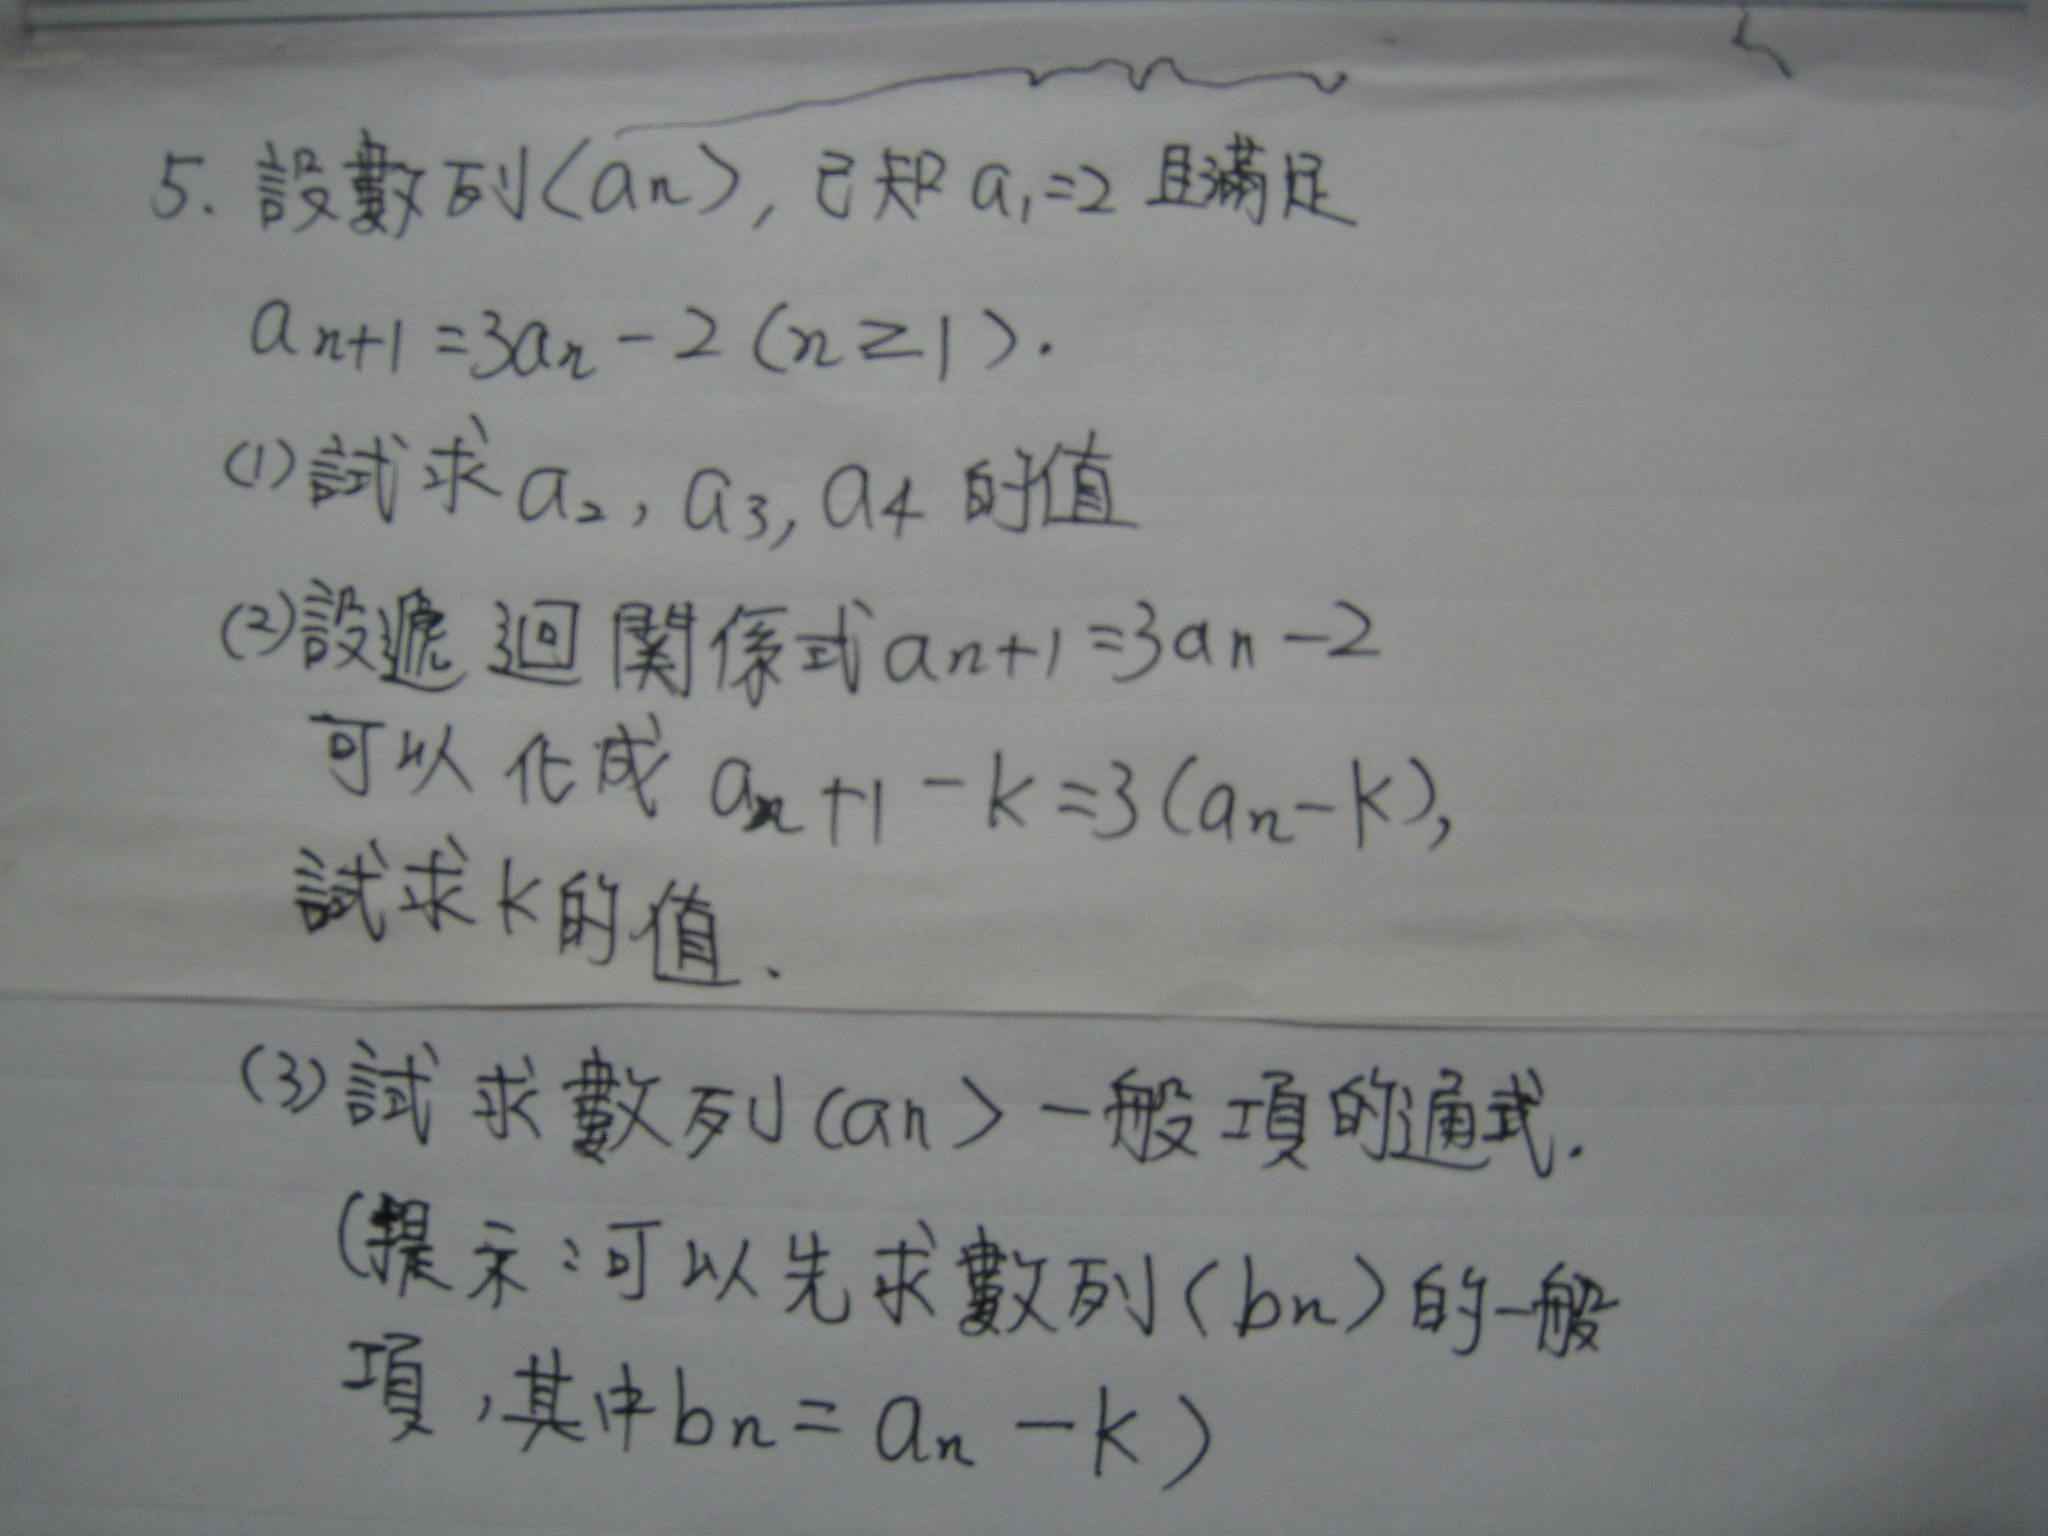 5. 設數列〈an〉, 已知 a₁=2 且滿足
an+1 = 3an - 2 (n ≥ 1).
(1) 試求 a₂, a₃, a₄ 的值
(2) 設遞迴関係式 an+1 = 3an - 2
可以化成 an+1 - k = 3(an - k),
試求 k 的值.
(3) 試求數列〈an〉一般項的通式.
(提示:可以先求數列〈bn〉的一般
項,其中 bn = an - k)